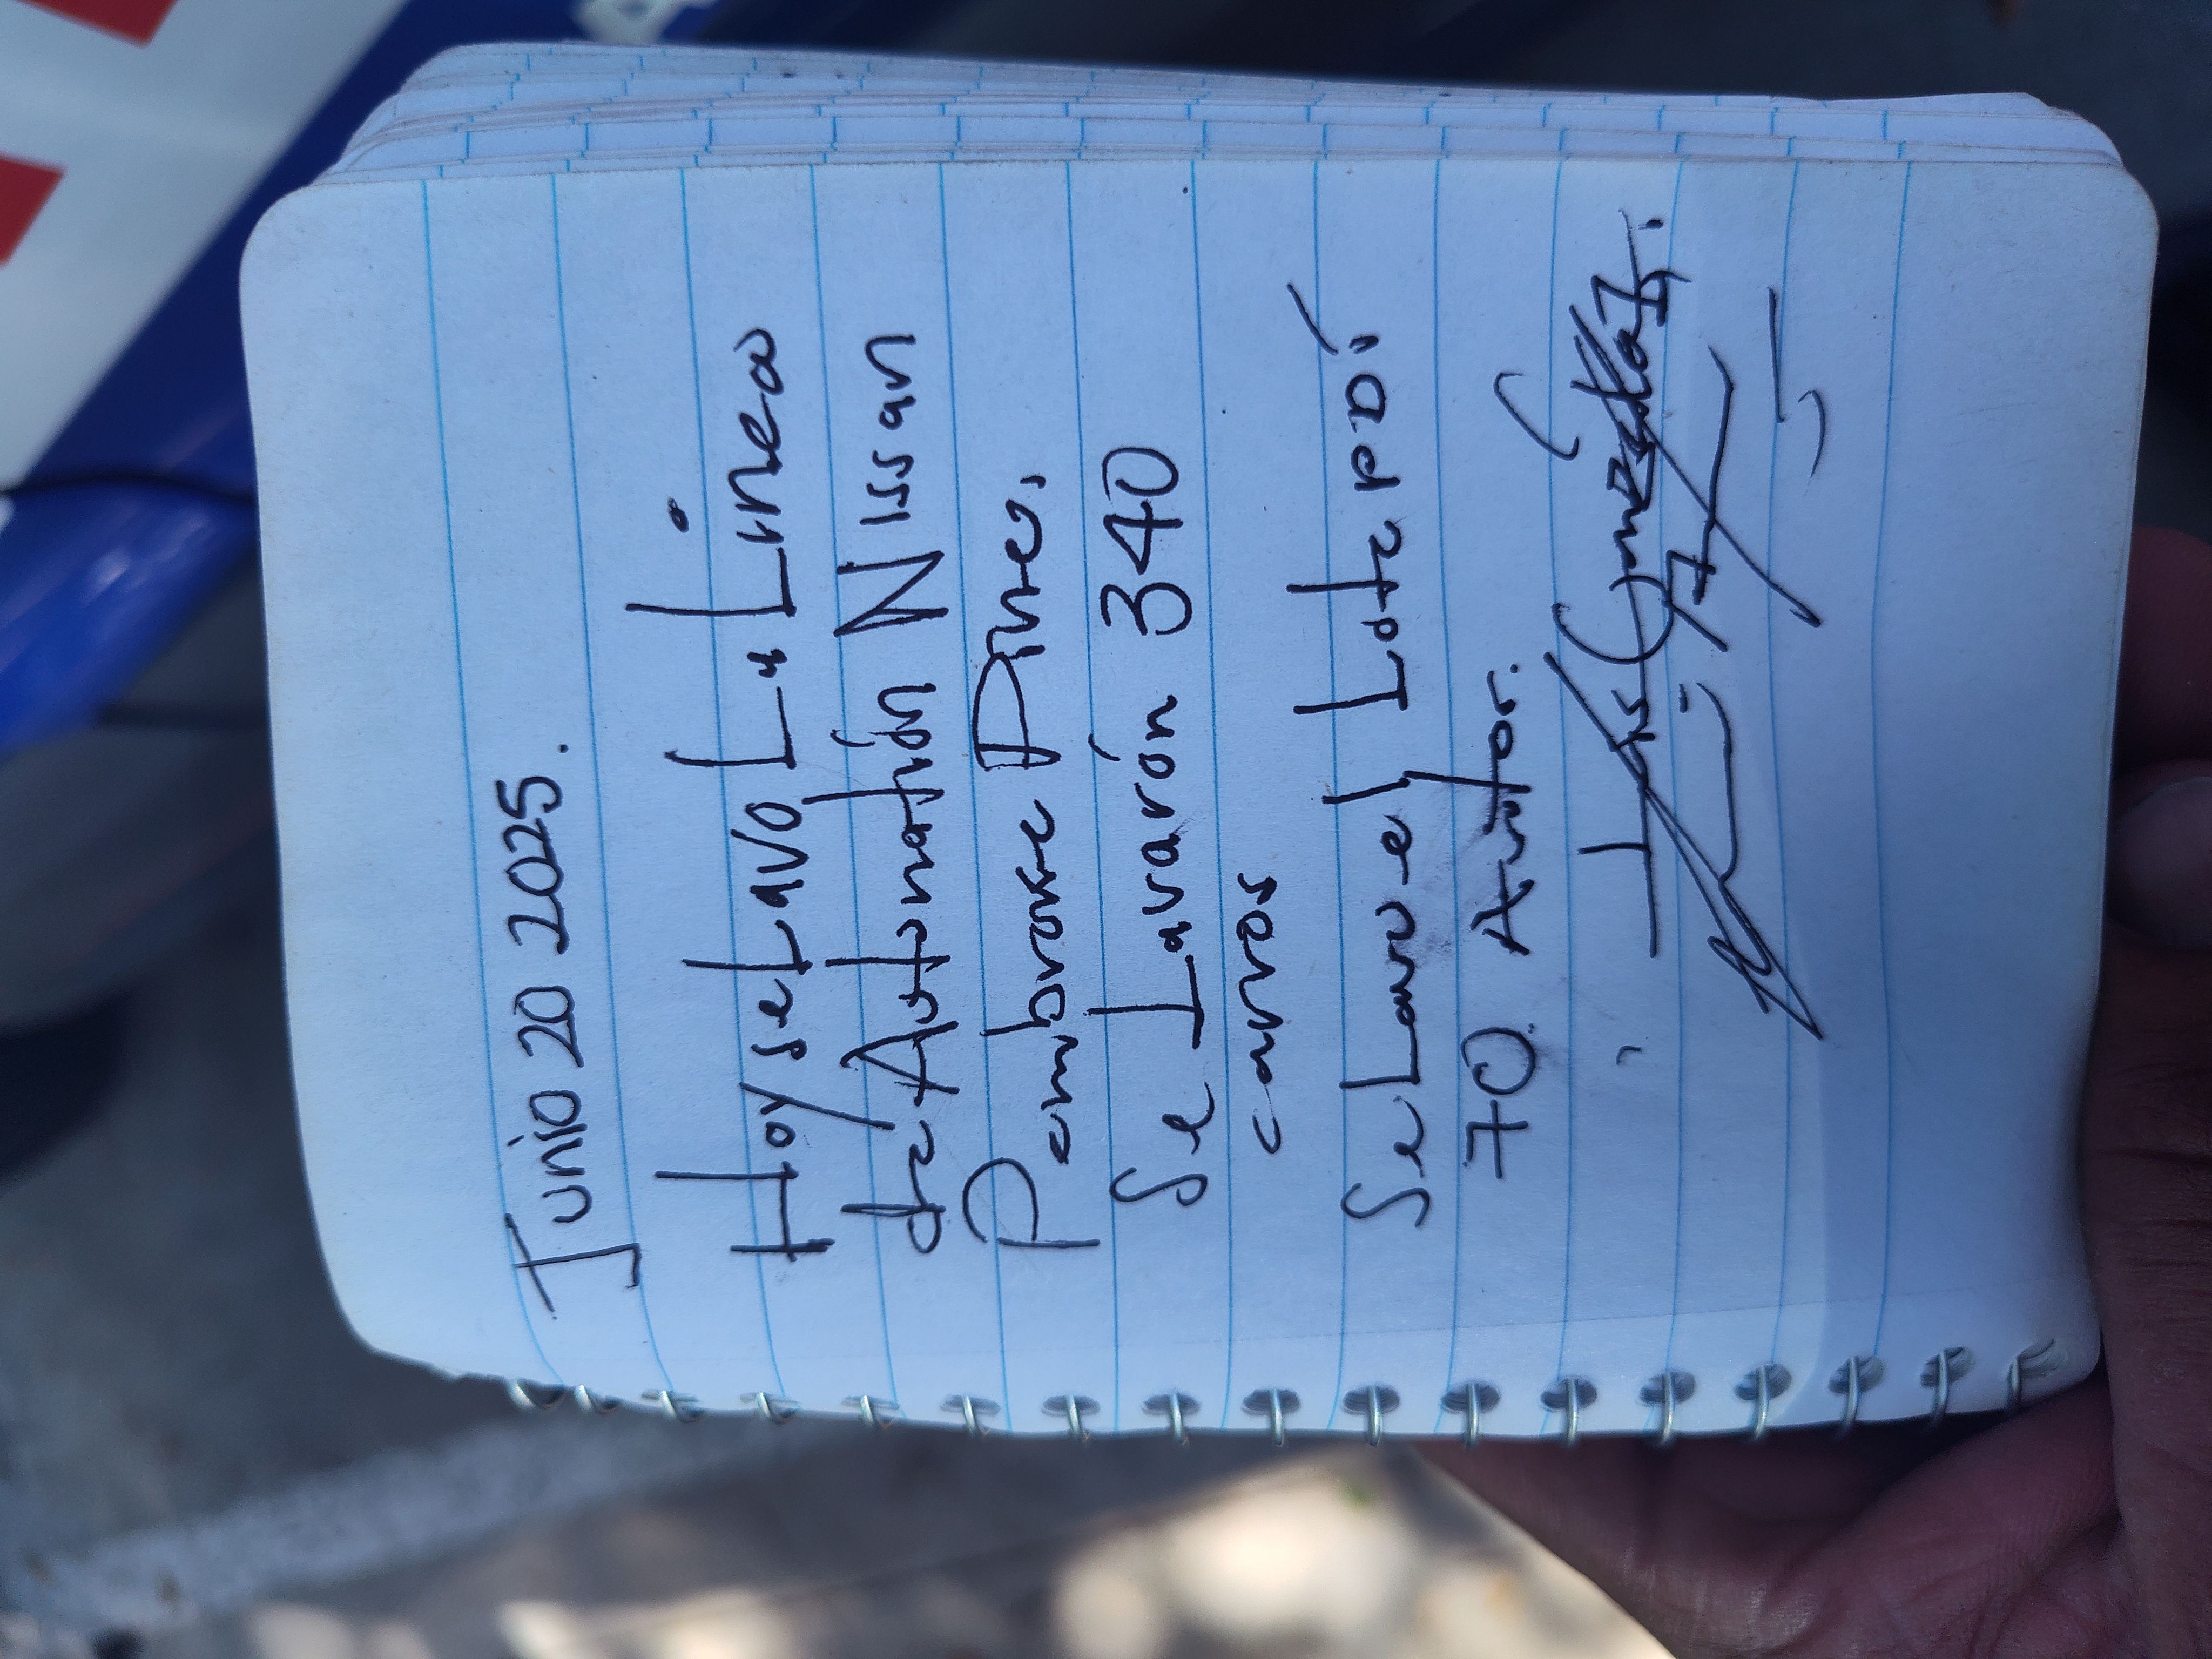 Junio 20 2025.
Hoy se Lavo La Linea
de Automatión Nissan
Pembroke Pine.
Se Lavarón 340
carros
Se Lavo el Lote po'
70 Autos.